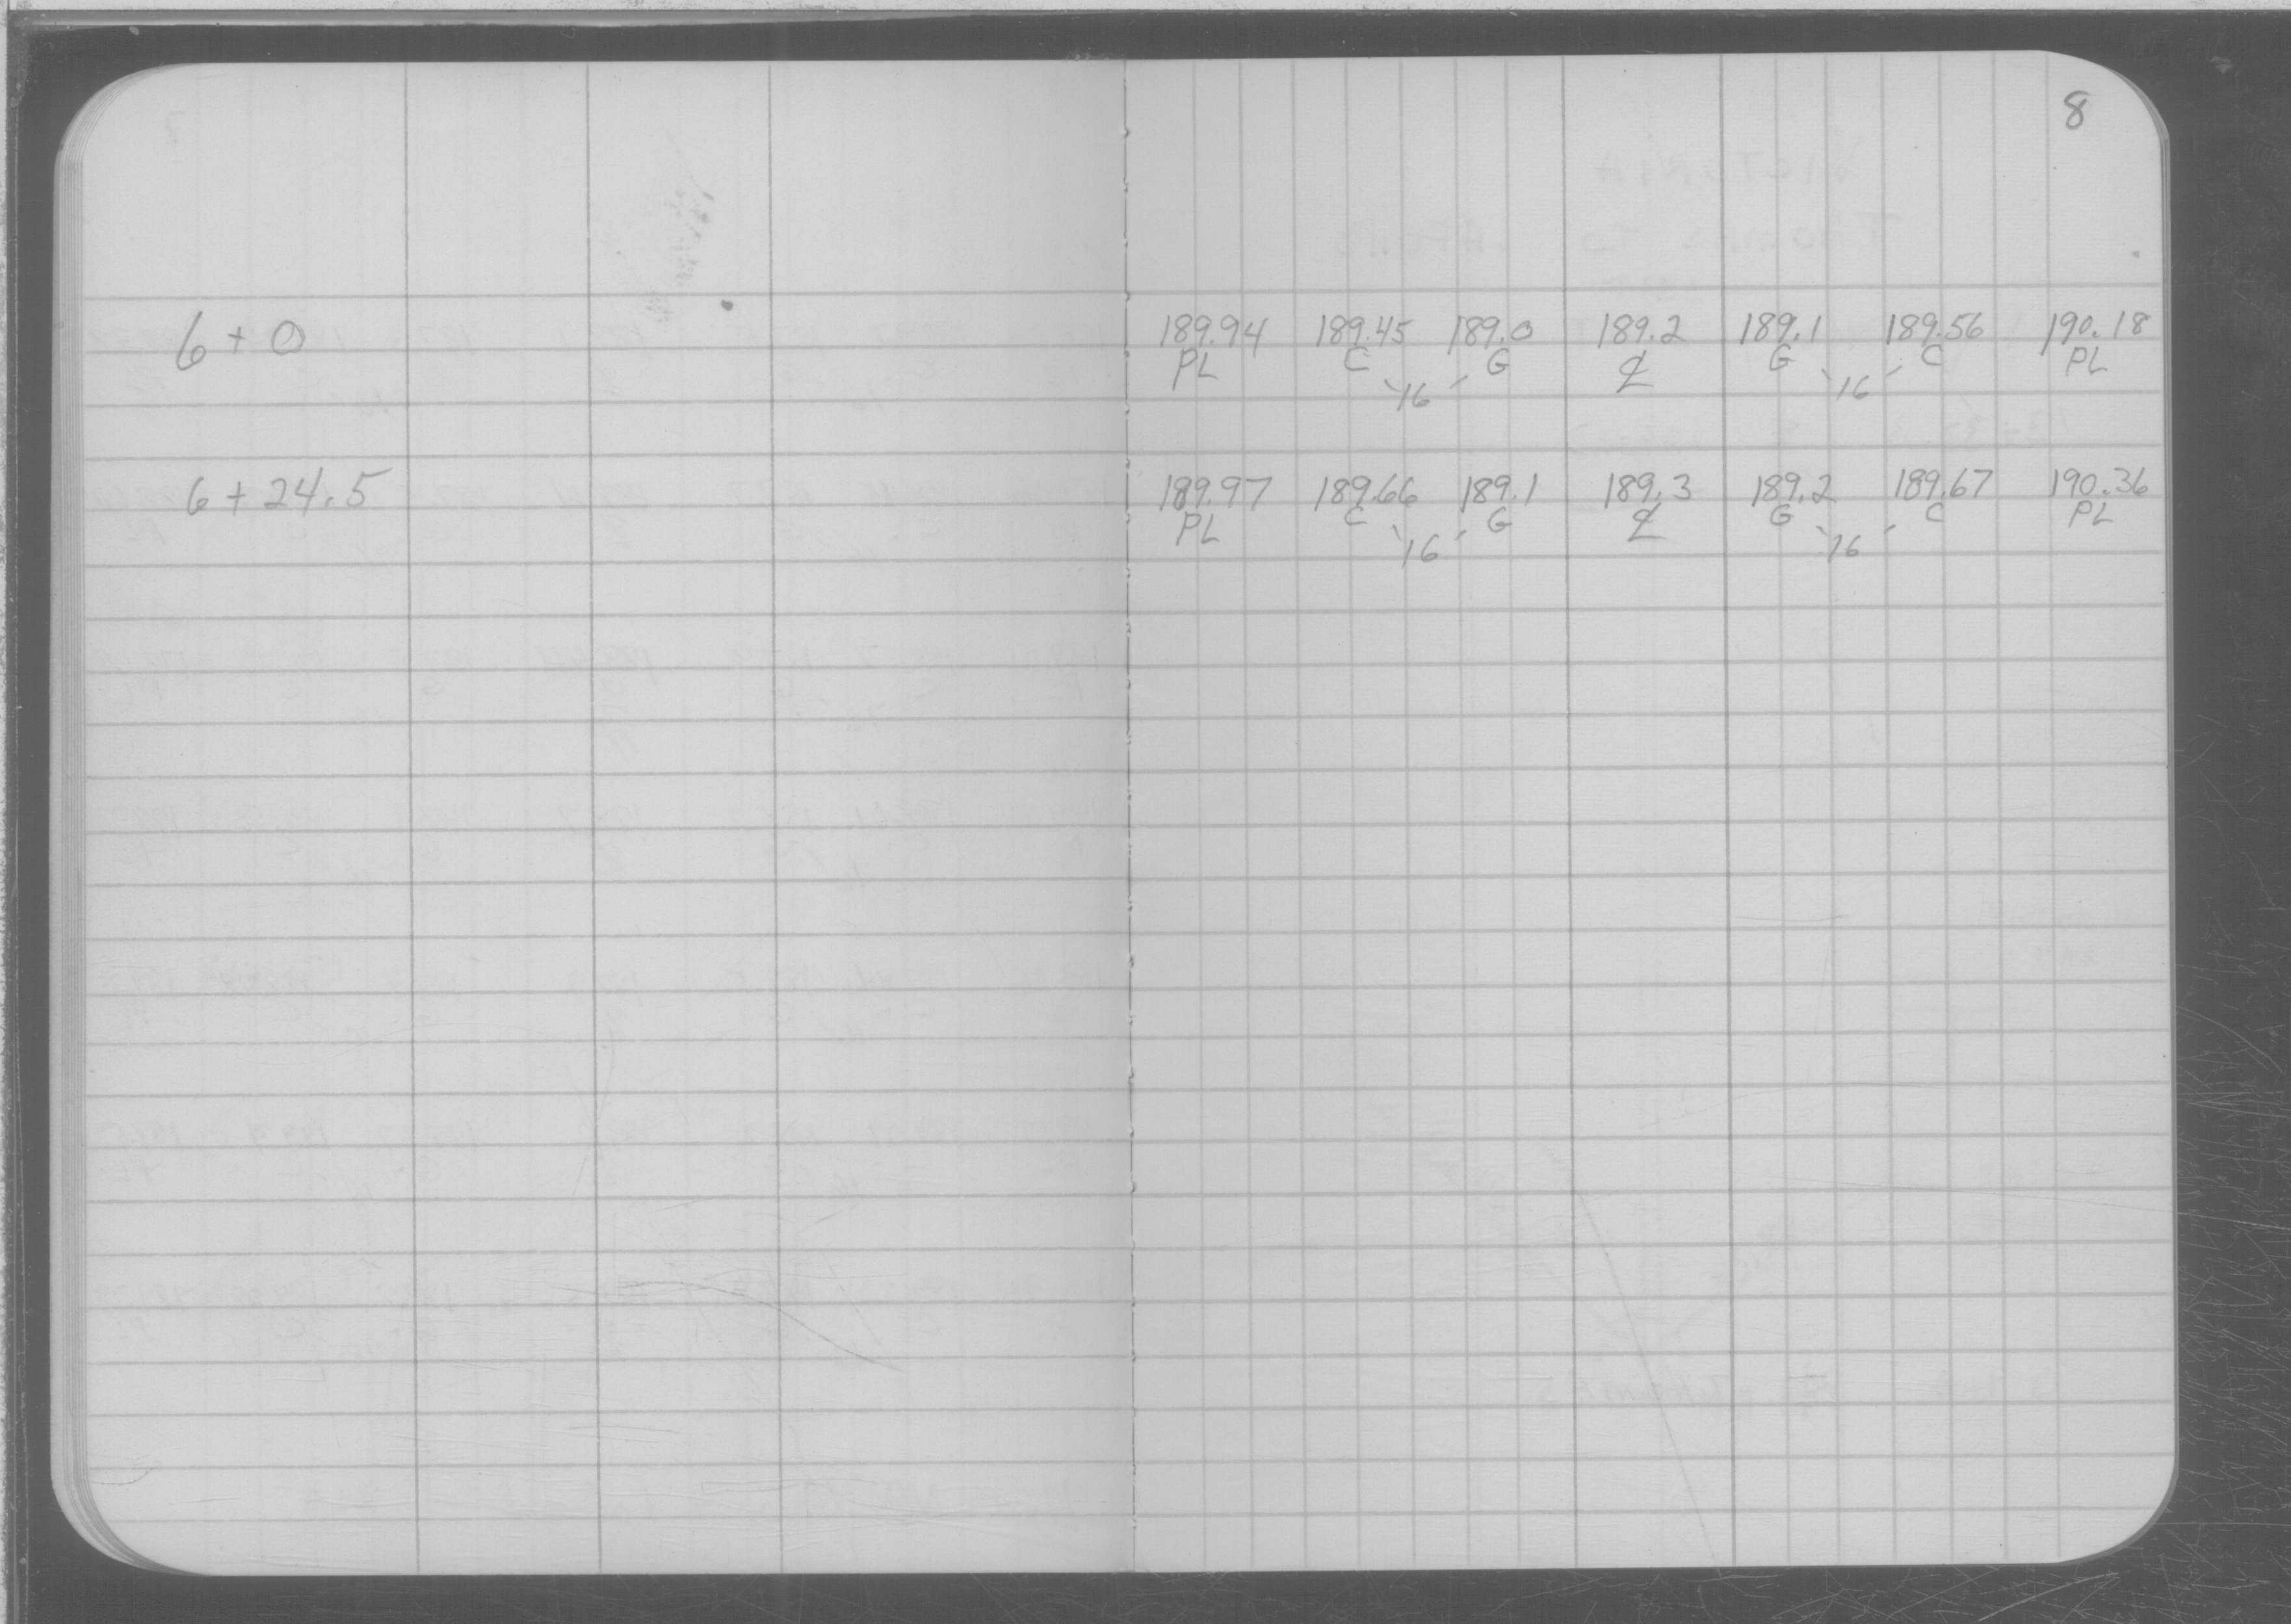 8
6+0 189.94 189.45 189.0 189.2 189.1 189.56 190.18
PL C G ℄ G C PL
16 16
6+24.5 189.97 189.66 189.1 189.3 189.2 189.67 190.36
PL C G ℄ G C PL
16 16